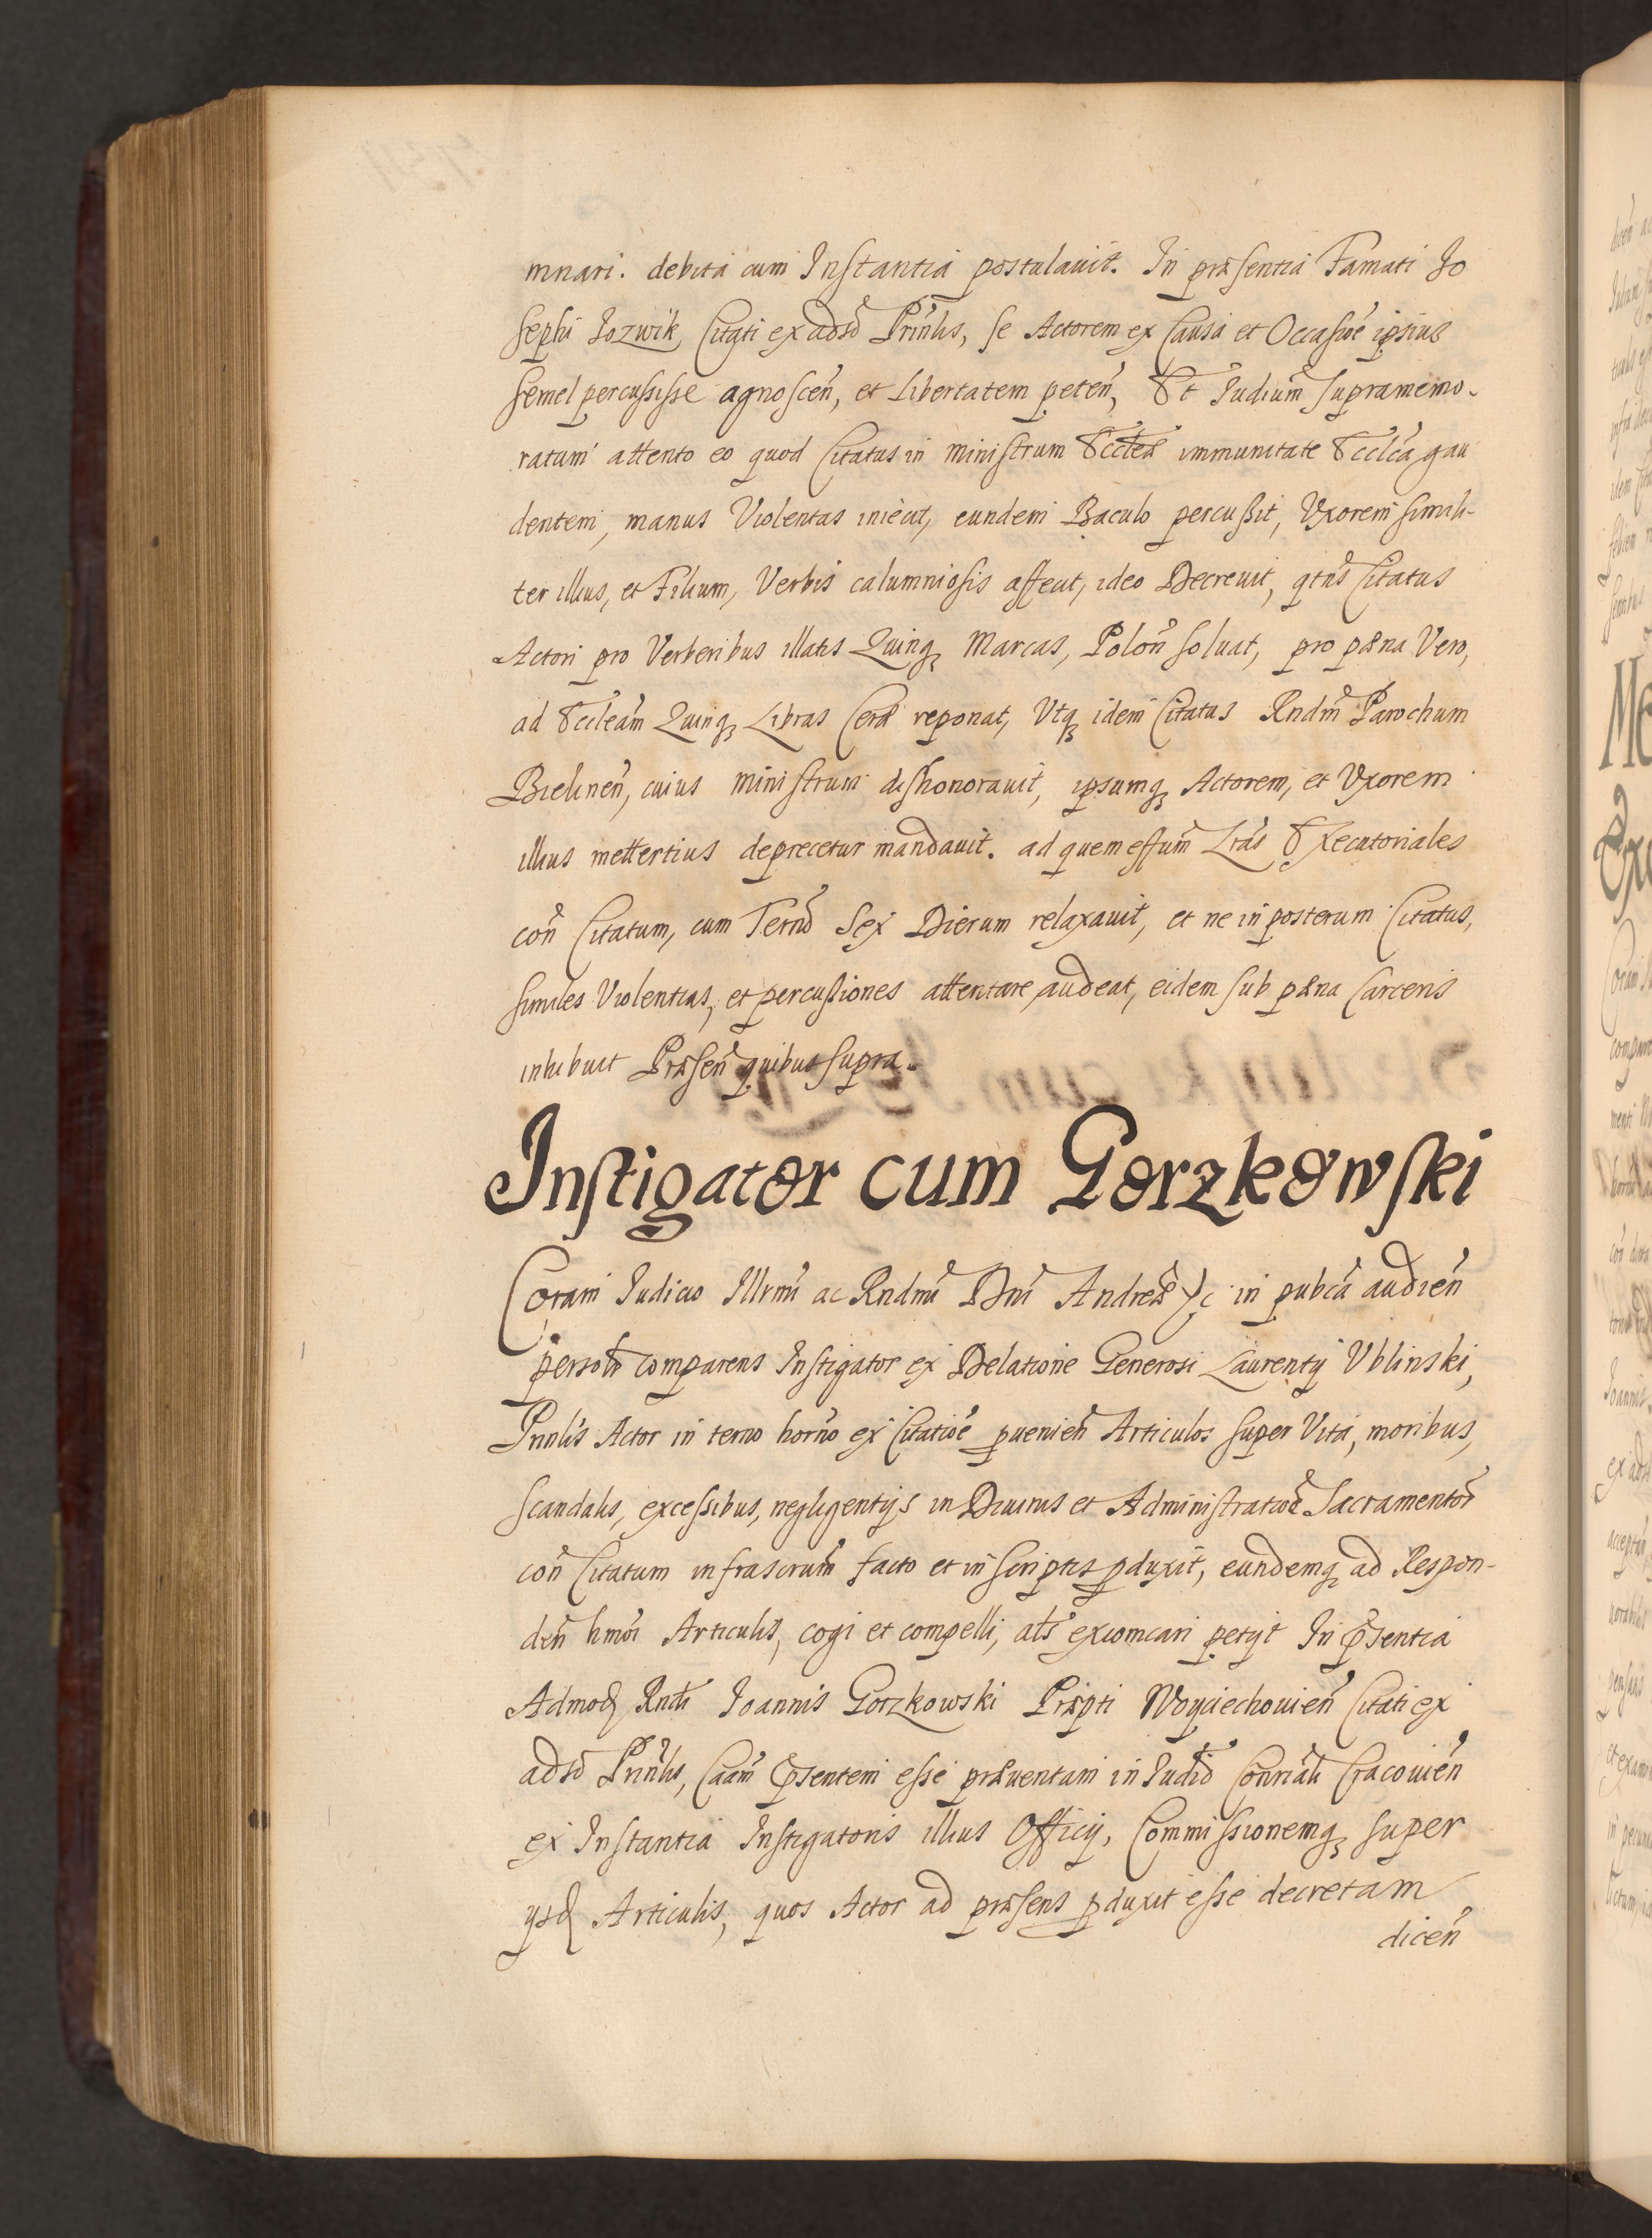 mnari. debita cum Instantia postulauit. In præsentia Famati Jo
sephi Jozwik, Citati ex adso Prinlis, se Actorem ex Causa et Occasioe ipsius
semel percussisse agnoscen, et libertatem peten, Et Judium supramemo-
ratum attento eo quod Citatus in ministrum Eccleæ immunitate Ecclca gau
dentem, manus Violentas iniecit, eundem Baculo percußit, Vxorem simili-
ter illius, et Filium, Verbis calumniosis affecit, ideo Decreuit, qtns Citatus
Actori pro Verberibus illatis Quinq3 Marcas, Polon soluat, pro pæna Vero,
ad Eccleam Quinq3 Libras Ceræ reponat, Vtq3 idem Citatus Rndm Parochum
Bielinen, cuius ministrum dishonorauit, ipsumq3 Actorem, et Vxorem
illius mettertius deprecetur mandauit. ad quem effum Lras Executoriales
con Citatum, cum Termo Sex Dierum relaxauit, et ne in posterum Citatus,
similes Violentias, et percußiones attentare audeat, eidem sub pæna Carceris
inhibuit Præsen quibus supra.
Instigator cum Gorzkowski
Coram Judicio Illrmi ac Rndmi Dni Andreæ &c in pubca audien
persolr comparens Instigator ex Delatione Generosi Laurentij Vblinski,
Prinlis Actor in termo horno ex Citatioe puenien Articulos super Vita, moribus,
scandalis, excessibus, negligentijs in Diuinis et Administratioe Sacramentor
con Citatum infrascrum facto et in scriptis pduxit, eundemq3 ad Respon-
den hmoi Articulis, cogi et compelli, als excomcari petijt In Psentia
Admod Rndi Joannis Gorzkowski Præpti Woyciechouien Citati ex
adso Prinlis, Caam Psentem esse præuentam in Judio Consriali Cracouien
ex Instantia Instigatoris illius Officij, Commissionemq3 super
ijsd Articulis, quos Actor ad præsens pduxit esse decretam
dicen